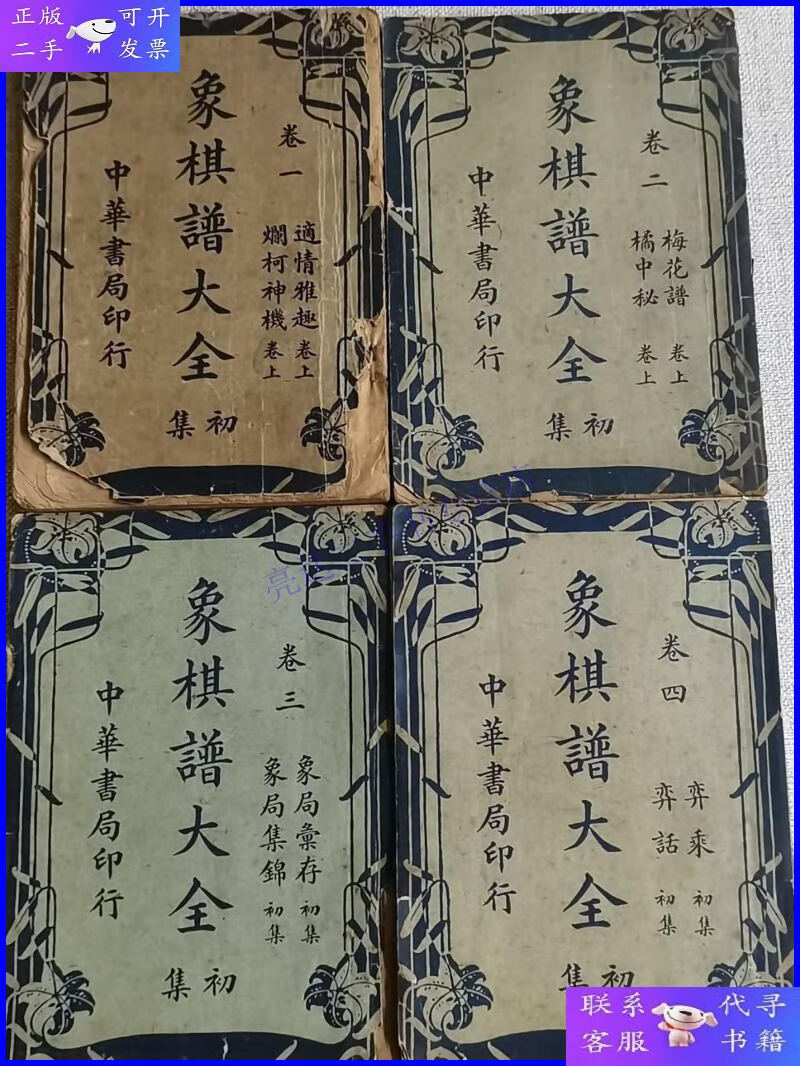 正版 可开
二手 发票
卷一
適情雅趣 卷上
爛柯神機 卷上
象棋譜大全
初集
中華書局印行
卷二
梅花譜 卷上
橘中秘 卷上
象棋譜大全
初集
中華書局印行
卷三
象局彙存 初集
象局集錦 初集
象棋譜大全
初集
中華書局印行
卷四
弈乘 初集
弈話 初集
象棋譜大全
初集
中華書局印行
联系 代寻
客服 书籍